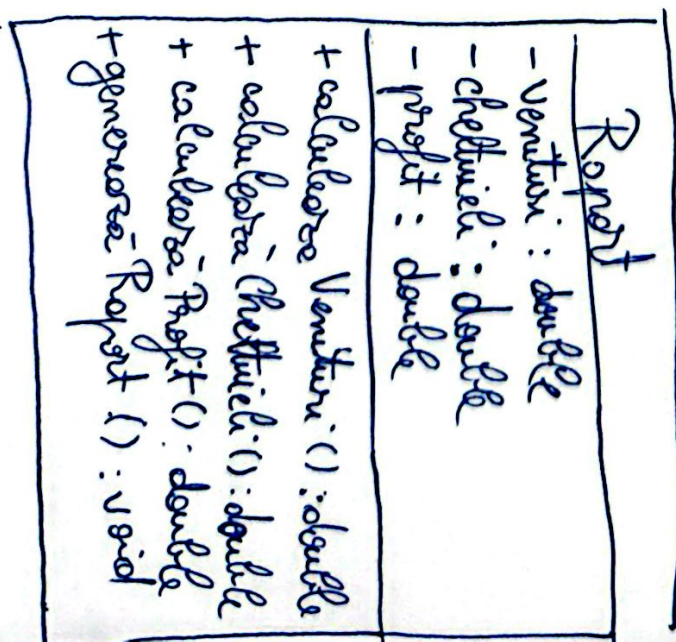 Raport
- venituri : double
- cheltuieli : double
- profit : double
+ calculeaza Venituri () : double
+ calculează Cheltuieli () : double
+ calculează Profit () : double
+ generează Raport () : void